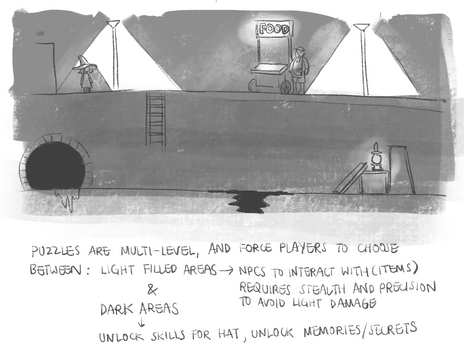 FOOD
PUZZLES ARE MULTI-LEVEL, AND FORCE PLAYERS TO CHOOSE
BETWEEN: LIGHT FILLED AREAS → NPCS TO INTERACT WITH (ITEMS)
REQUIRES STEALTH AND PRECISION
& TO AVOID LIGHT DAMAGE
DARK AREAS
↓
UNLOCK SKILLS FOR HAT, UNLOCK MEMORIES/SECRETS